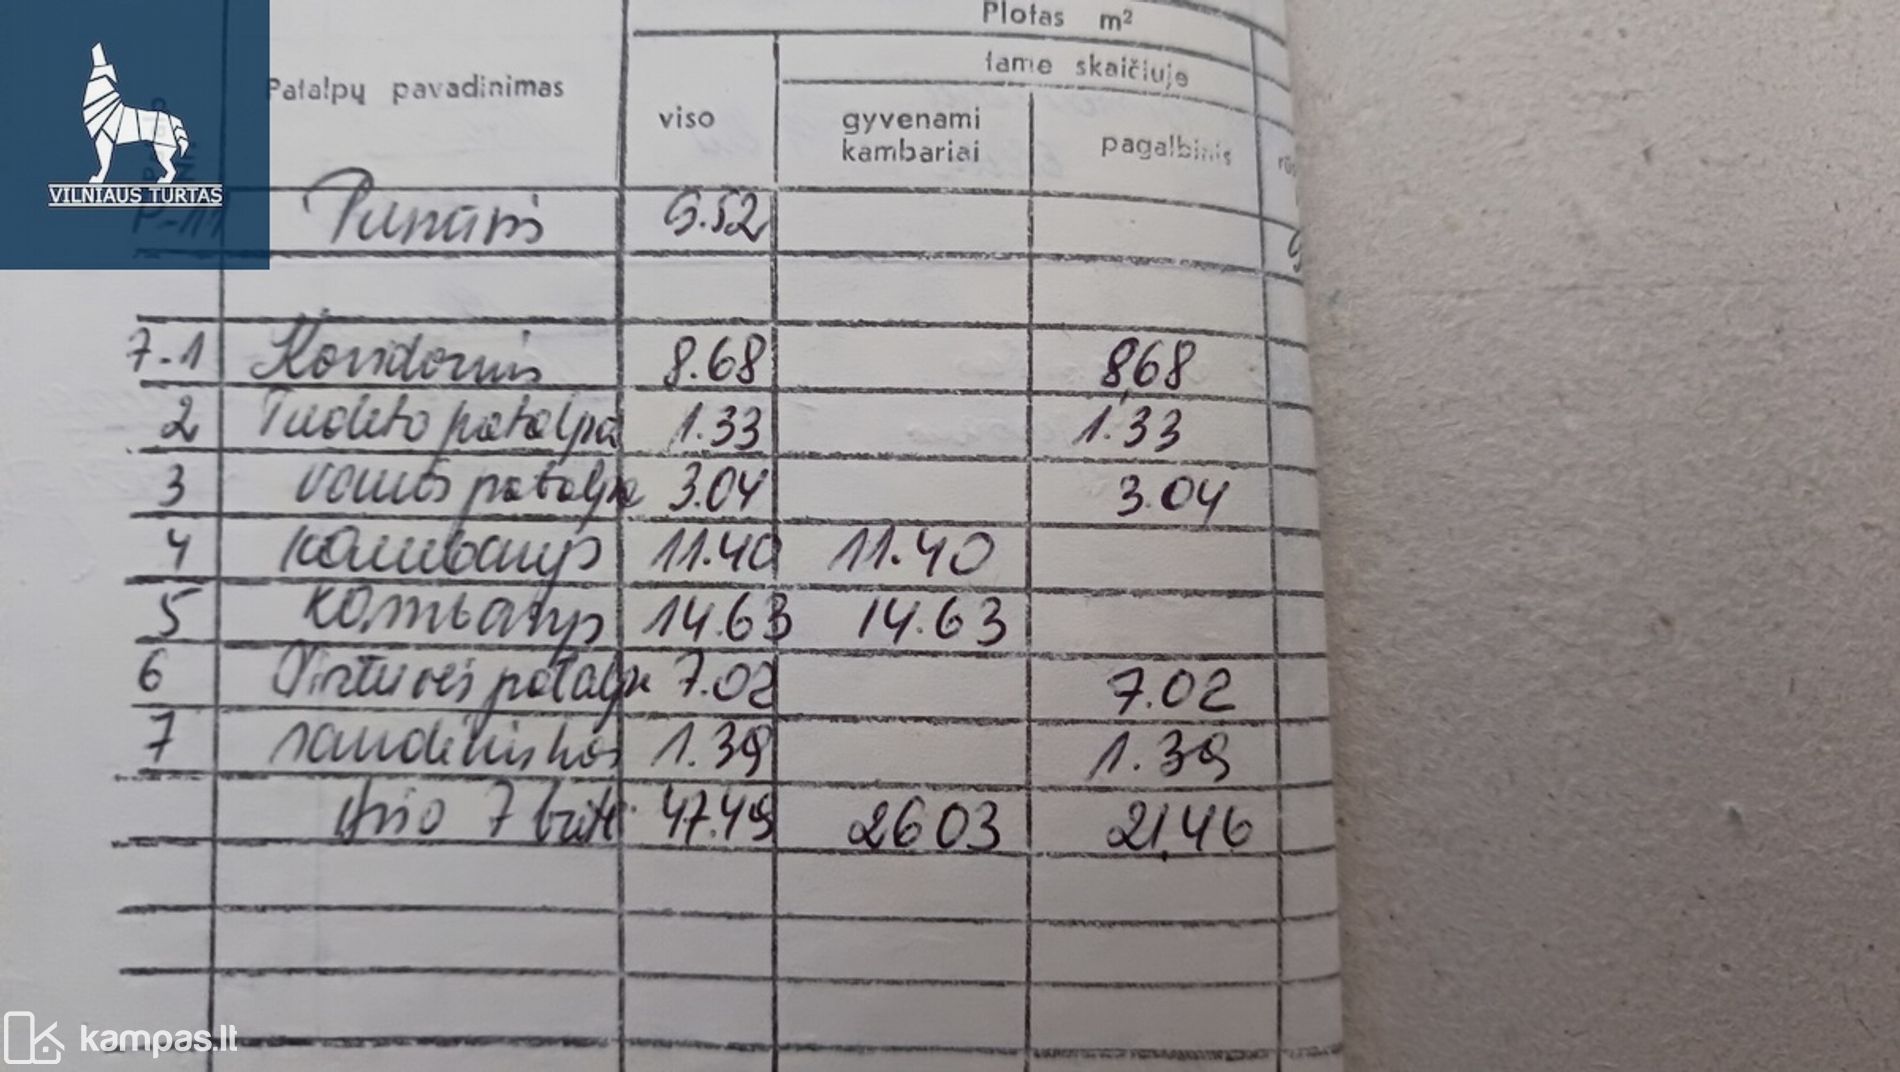 Plotas m²
tame skaičiuje
Patalpų pavadinimas
viso
gyvenami
kambariai
pagalbinis
VILNIAUS TURTAS
P-11 9.52
7-1 Koridorius 8.68 8,68
2 Tualeto patalpa 1.33 1.33
3 vonios patalpa 3.04 3.04
4 kambarys 11.40 11.40
5 kambarys 14.63 14.63
6 Virtuvės patalpa 7.02 7.02
7 sandėliukas 1.39 1.39
Viso 7 bute: 47.49 26 03 21,46
kampas.lt